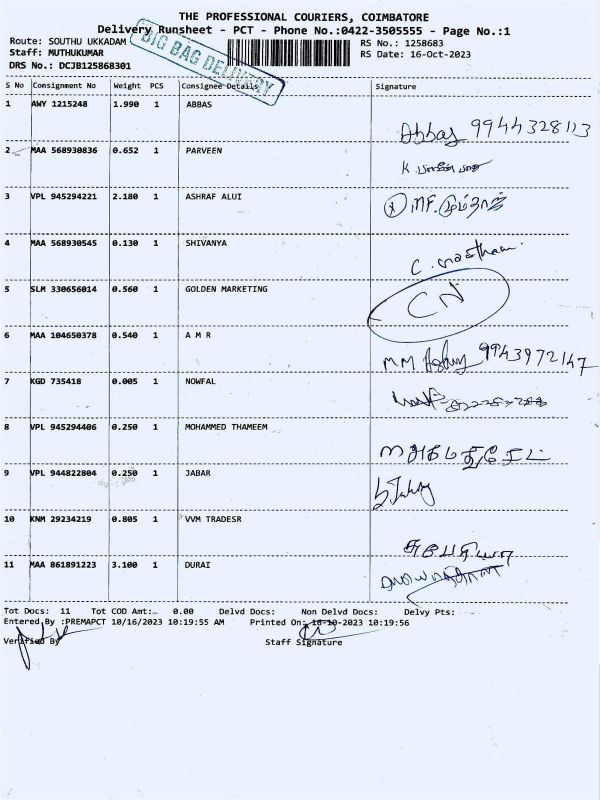 THE PROFESSIONAL COURIERS, COIMBATORE
Delivery Runsheet - PCT - Phone No.:0422-3505555 - Page No.:1
Route: SOUTHU UKKADAM
RS No.: 1258683
Staff: MUTHUKUMAR
RS Date: 16-Oct-2023
DRS No.: DCJB125868301
BIG BAG DELIVERY
S No Consignment No Weight PCS Consignee Details Signature
1 AWY 1215248 1.990 1 ABBAS
Abbas 9944328113
2 MAA 568930836 0.652 1 PARVEEN
3 VPL 945294221 2.180 1 ASHRAF ALUI
MF. மும்தாஜ்
4 MAA 568930545 0.130 1 SHIVANYA
5 SLM 330656014 0.560 1 GOLDEN MARKETING
6 MAA 104650378 0.540 1 A M R
9943972147
7 KGD 735418 0.005 1 NOWFAL
8 VPL 945294406 0.250 1 MOHAMMED THAMEEM
9 VPL 944822804 0.250 1 JABAR
10 KNM 29234219 0.805 1 VVM TRADESR
11 MAA 861891223 3.100 1 DURAI
Tot Docs: 11 Tot COD Amt: 0.00 Delvd Docs: Non Delvd Docs: Delvy Pts:
Entered By :PREMAPCT 10/16/2023 10:19:55 AM Printed On: 16-10-2023 10:19:56
Verified By Staff Signature